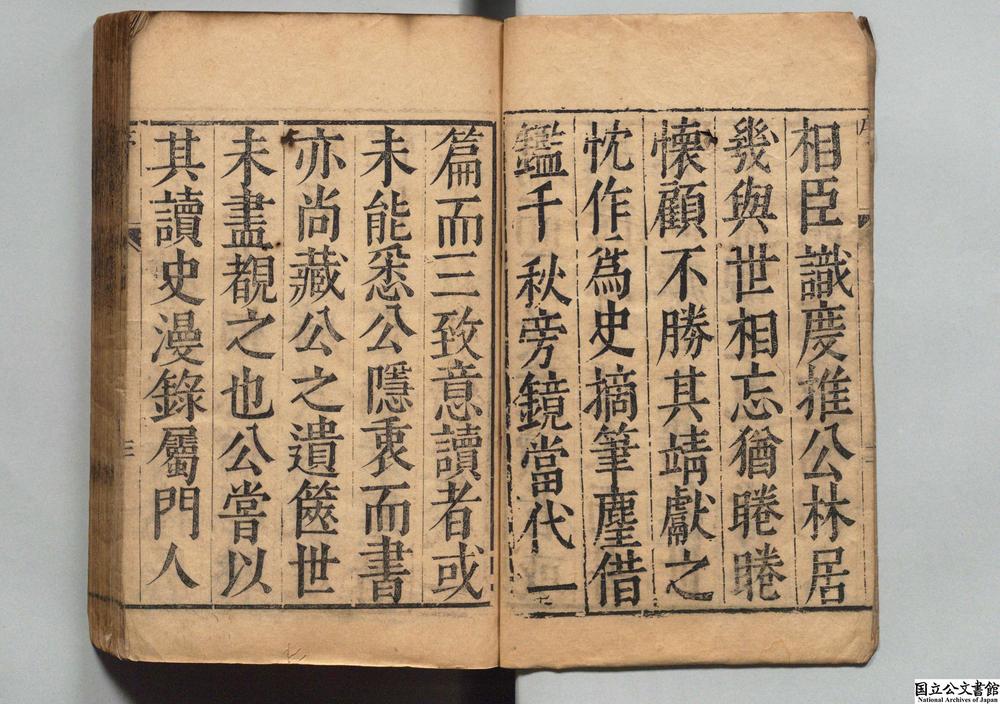 相臣識度推公林居
幾與世相忘猶睠睠
懷顧不勝其靖獻之
忱作爲史摘筆麈借
鑑千秋旁鏡當代一
篇而三致意讀者或
未能悉公隱衷而書
亦尚藏公之遺篋世
未盡覩之也公嘗以
其讀史漫錄屬門人
国立公文書館
National Archives of Japan